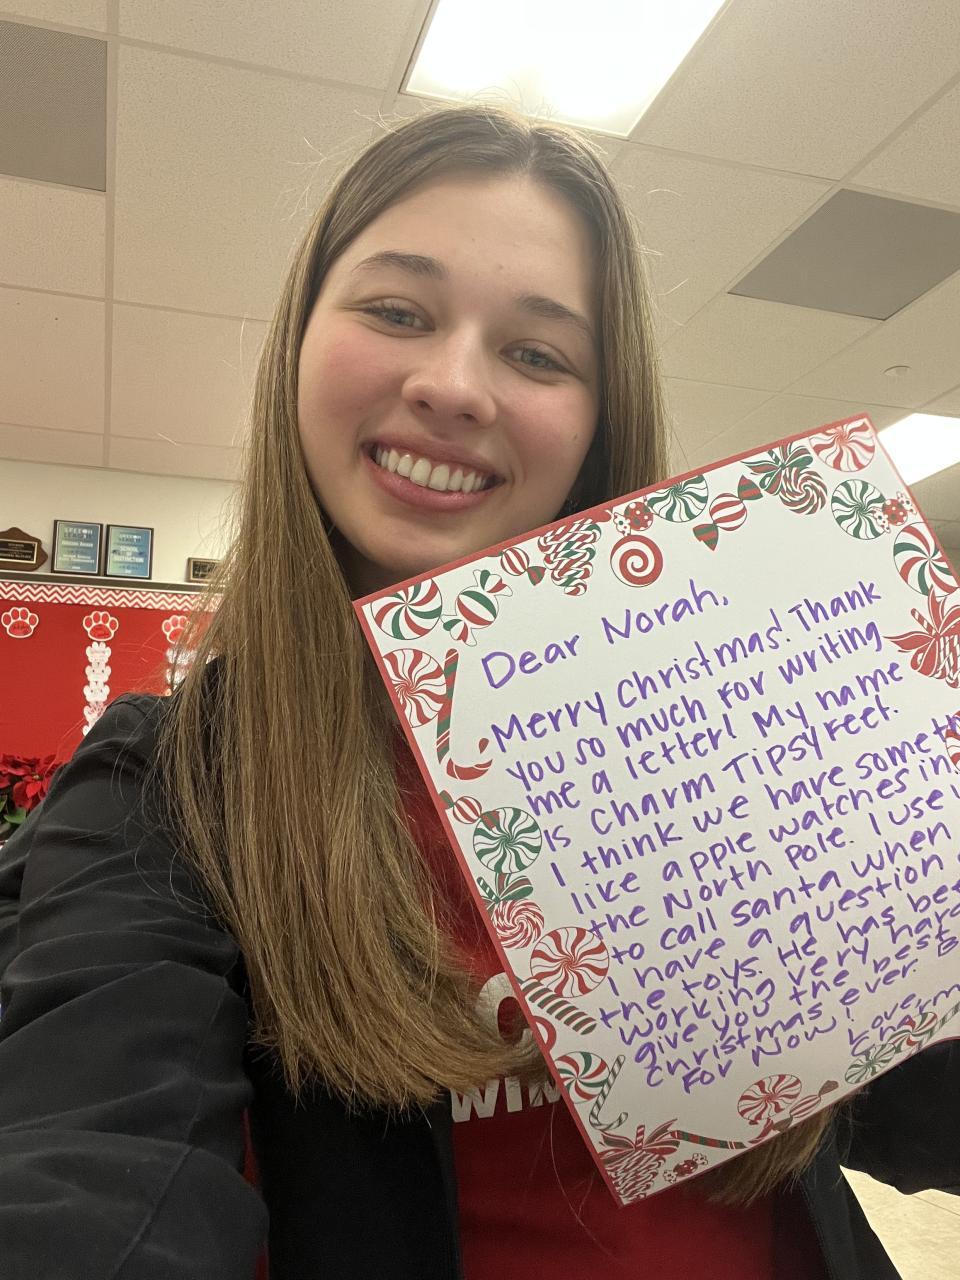 Dear Norah,
Merry Christmas! Thank
you so much for writing
me a letter! My name
is Charm Tipsyfeet.
I think we have someth
like apple watches in
the North Pole. I use
to call Santa when
I have a question
the toys. He has bee
working very hard
give you the best
christmas ever. B
For Now!
Love,
Charm
SCHOOL
OF
DISTINCTION
WIM